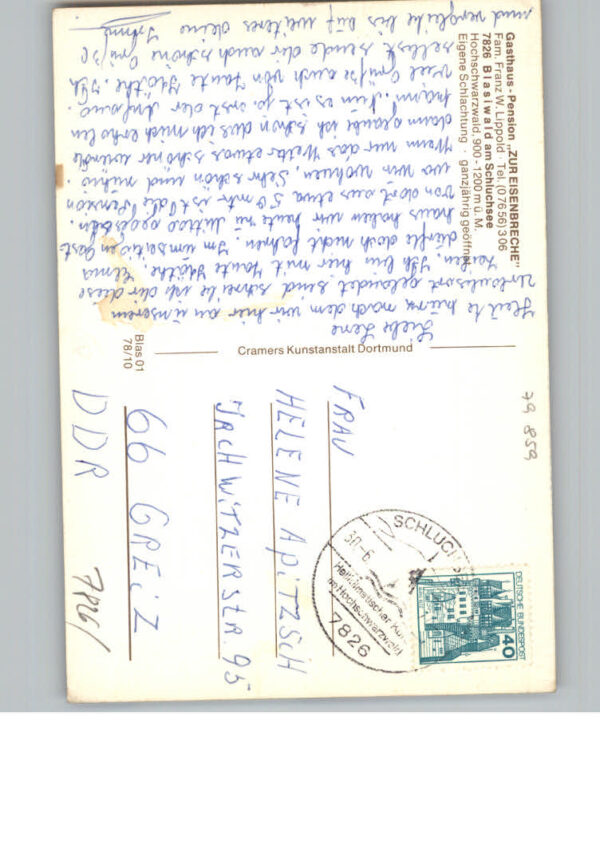 Gasthaus - Pension „ZUR EISENBRECHE"
Fam. Franz W. Lippold · Tel. (0 76 56) 3 06
7826 Blasiwald am Schluchsee
Hochschwarzwald, 900 - 1200 m ü. M.
Eigene Schlachtung · ganzjährig geöffnet
Liebe Lene
Heute nach dem wir hier an unserem
Urlaubsort gelandet sind schreibe ich dir diese
Zeilen. Ich bin hier mit Tante Käthe.
dürfte doch nicht fahren. Im umseitigen Gast-
haus haben wir heute zu Mittag gegessen.
von dort aus etwa 50 mtr ist die Pension
wo wir wohnen. Sehr schön und ruhig
Wenn nur das Wetter etwas schöner würde
dann glaube ich schon das ich mich erholen
kann. Nun es ist ja erst der Anfang.
viel Grüße auch von Tante Käthe. Ich
selbst sende dir auch schöne Grüße
und verbleibe bis auf weiteres deine
Blas 01
78/10
Cramers Kunstanstalt Dortmund
FRAU
HELENE APiTZSCH
95
66 GREiZ
DDR
79 859
SCHLUCHSEE
30.-6.
Heilklimatischer Kur
im Hochschwarzwald
7826
DEUTSCHE BUNDESPOST
40